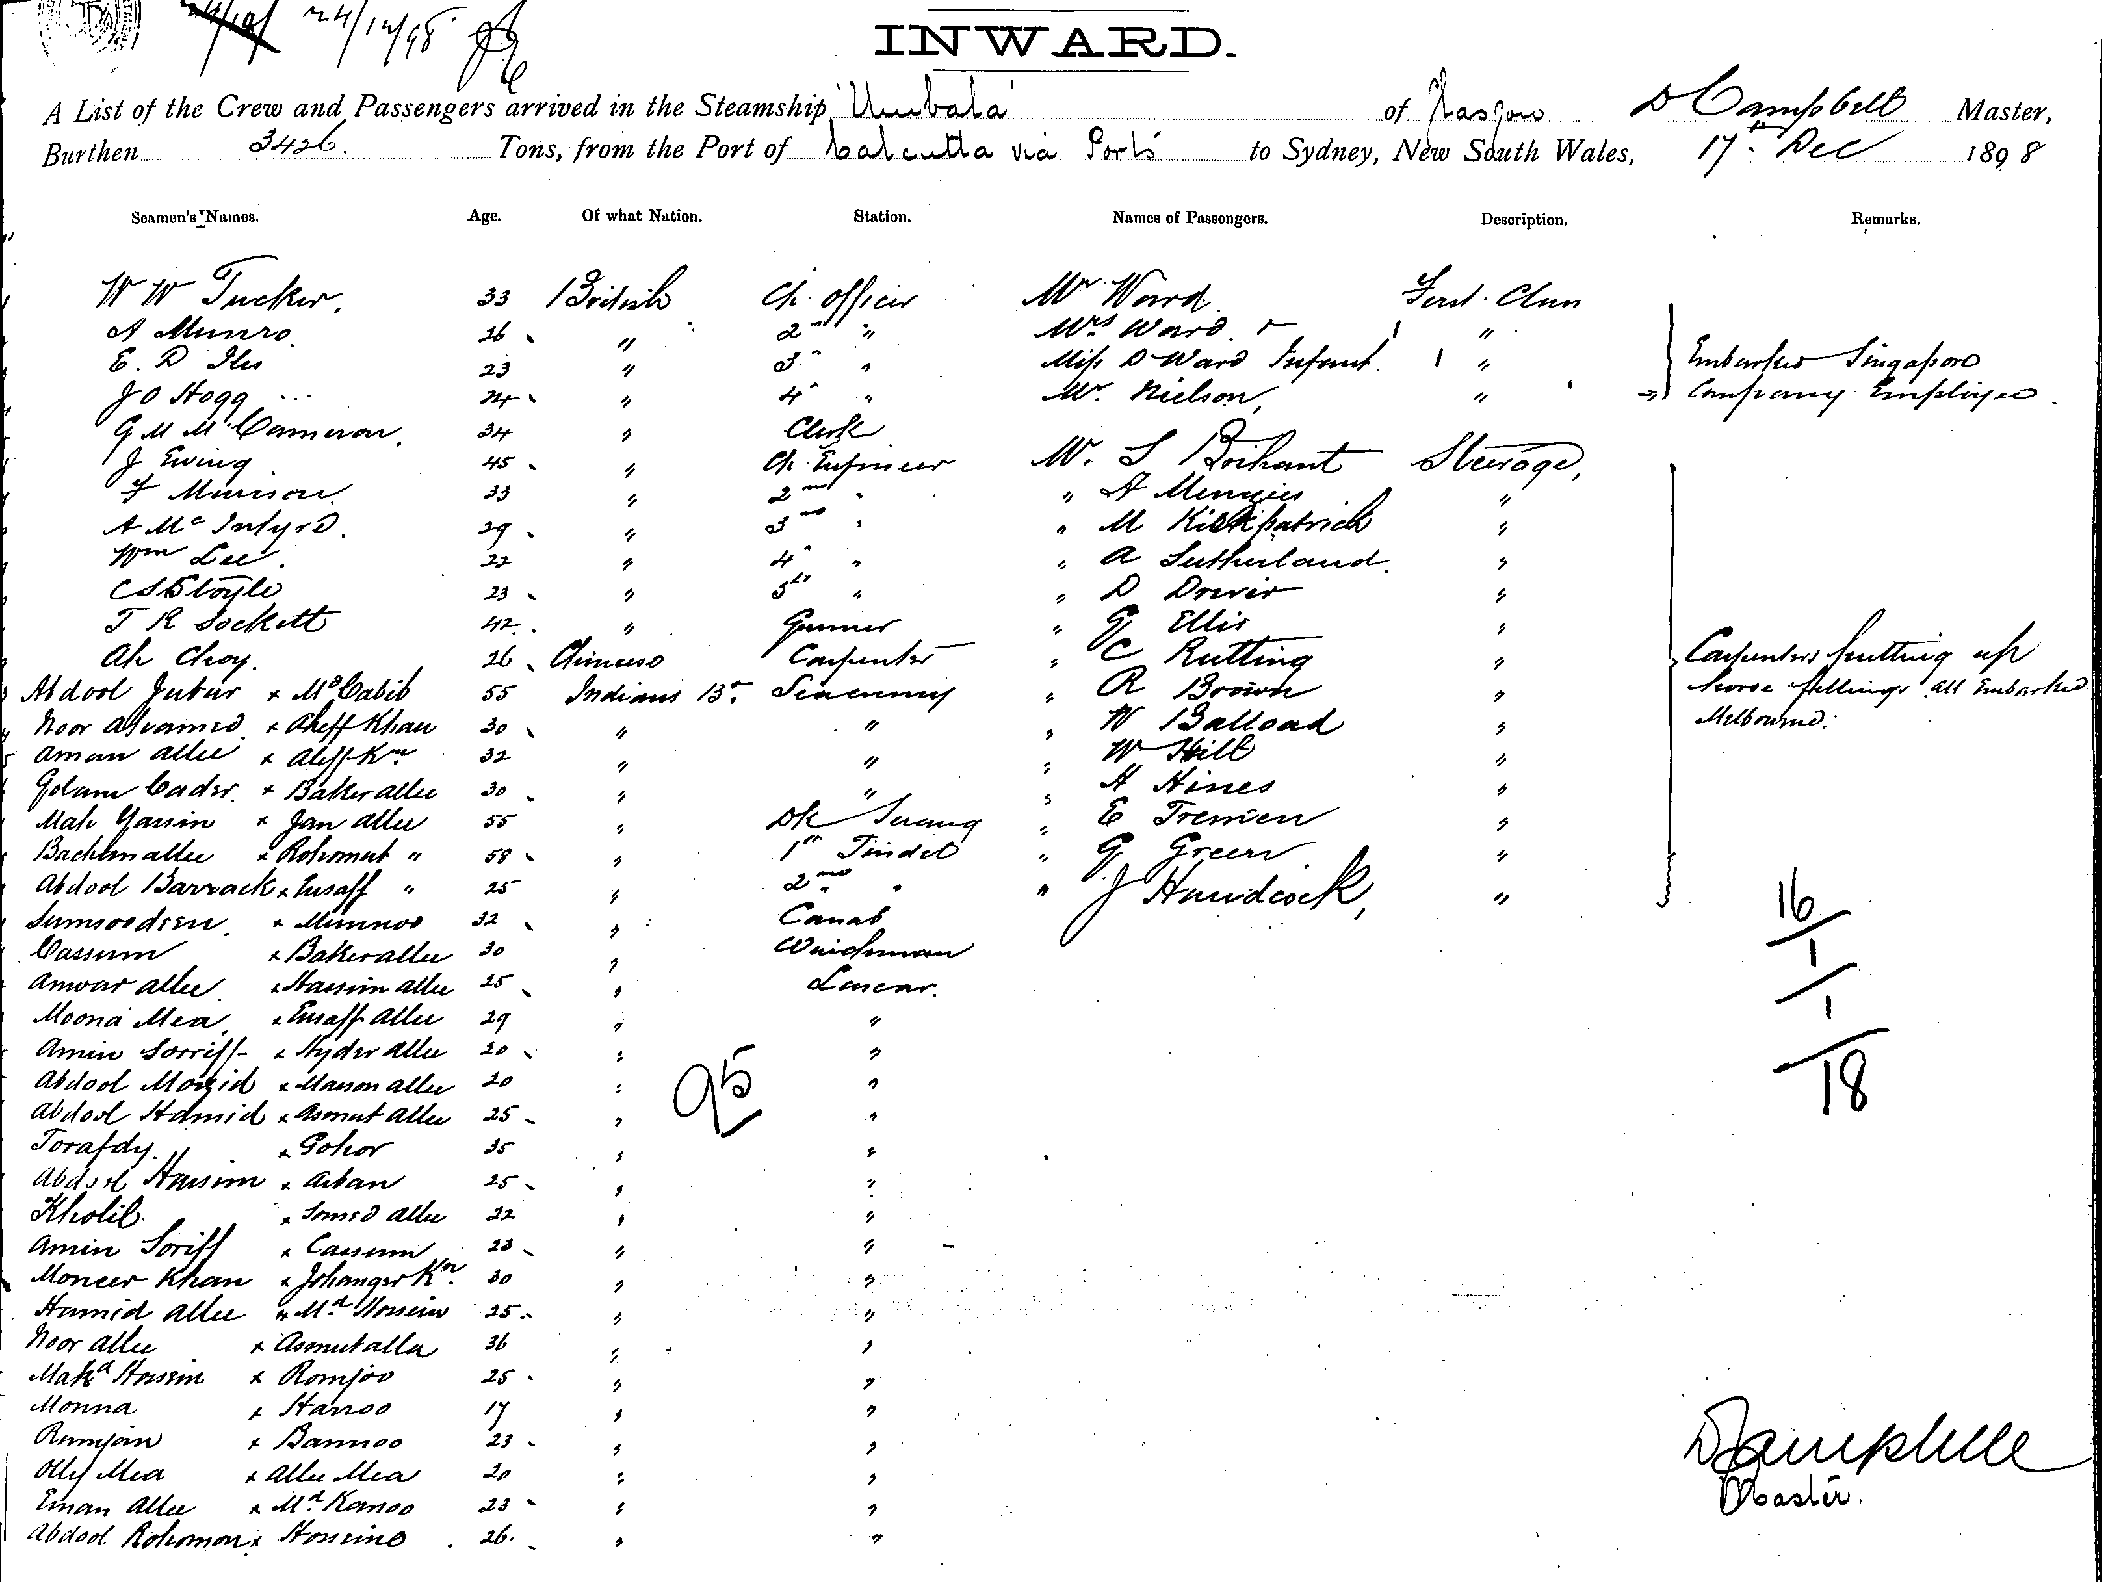 24/12/98
INWARD.
A List of the Crew and Passengers arrived in the Steamship "Umbala" of Glasgow D Campbell Master,
Burthen 3426 Tons, from the Port of Calcutta via Ports to Sydney, New South Wales, 17th Dec 1898
Seamen's Names. Age. Of what Nation. Station. Names of Passengers. Description. Remarks.
W W Tucker. 33 British Ch. Officer Mr Ward First Class
A Munro. 26 " 2nd " Mrs Ward 1 "
E. D Iles 23 " 3 " Miss D Ward Infant. 1 " Embarked Singapore
J O Hogg 24 " 4 " Mr. Nielson, " Company Employee.
G M McCameron. 34 " Clerk
J Ewing 45 " Ch. Engineer Mr. S Steerage,
F Munson 33 " 2nd " " A Menzies "
A McIntyre. 29 " 3rd " " M Kirkpatrick "
Wm Lee. 22 " 4 " " A Sutherland. "
C S Stoyle 23 " 5th " " D Drever "
T R Sockett 42 " Gunner " G Ellis "
Ah Choy. 26 Chinese Carpenter " C Rutting " Carpenters putting up
Abdool Jubar x Md Cabib 55 Indians Br. Seacunny " R Brown " horse fittings all Embarked
Noor Ahamed x Aleff Khan 30 " " " W Balload " Melbourne.
Aman Allee x Aleff Kn 32 " " " W Hill "
Golam Cader x Baker Allee 30 " " " H Hines "
Mah Yassin x Jan Allee 55 " Dk Serang " E Tremen "
Bachimallee x Rohomut " 58 " 1st Tindel " G Green "
Abdool Barrack x Eusaff " 25 " 2nd " " J Handcock, "
Sumsoodeen x Munnoo 32 " Canab 16
Cassum x Bakerallee 30 " Winchman 1
Anwar Allee x Hassim Allee 25 " Lascar. 1
Moona Mea x Eusaff Allee 29 " "
Amin Sorriff x Hyder Allee 20 " " 18
Abdool Mozid x Hasson Allee 20 " 95 "
Abdool Hamid x Asmut Allee 25 " "
Torafdy. x Gohor 35 " "
Abdool Hassim x Arban 25 " "
Kholil. x Somed Allee 22 " "
Amin Soriff x Cassum 23 " "
Moneer Khan x Johanger Kn. 30 " "
Hamid Allee x Md Hossein 25 " "
Noor Allee x Asmutalla 36 " "
Mahd Hossein x Romjoo 25 " "
Monna x Hanoo 17 " "
Rumjan x Bannoo 23 " " D Campbell
Olly Mea x Allee Mea 20 " "
Eman Allee x Md Kanoo 23 " " Master.
Abdool Rohomon x Hosseine 26. " "